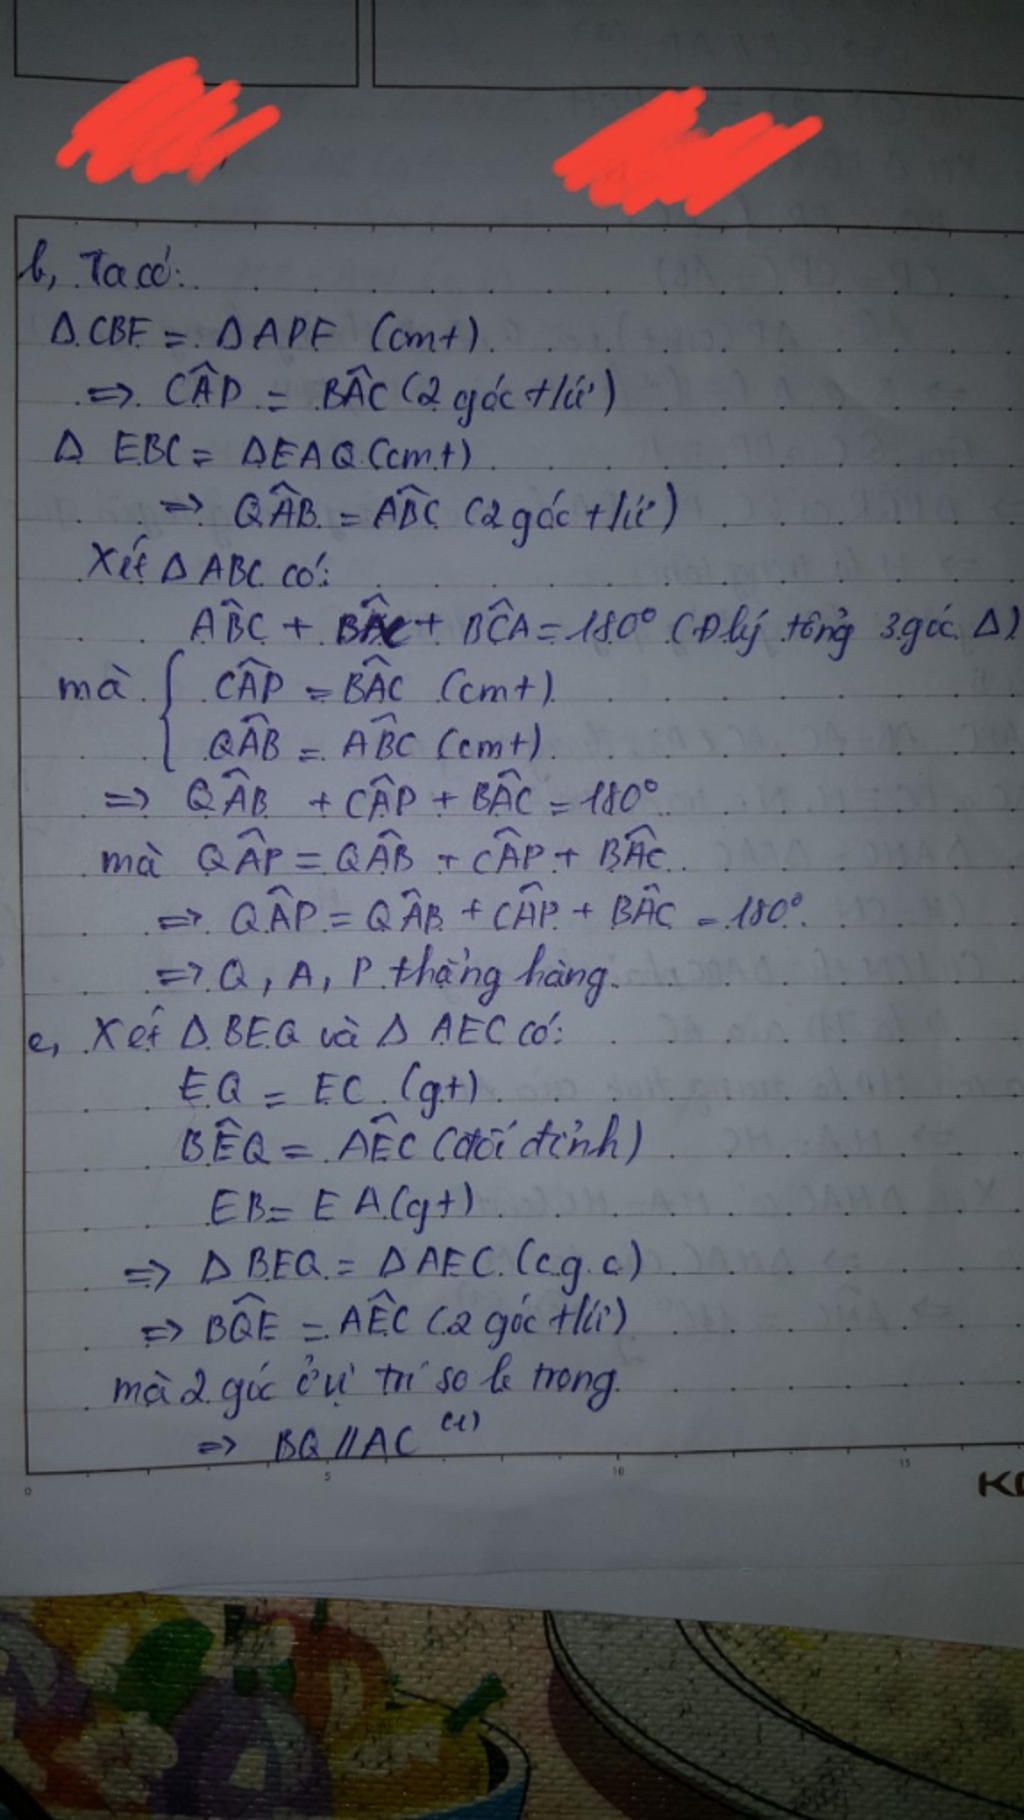 b, Ta có:
Δ CBF = Δ APF (cmt)
=> CÂP = BÂC (2 góc t/ứ)
Δ EBC = ΔEAQ (cmt)
=> QÂB = AB̂C (2 góc t/ứ)
Xét Δ ABC có:
AB̂C + BÂC + BĈA = 180° (Đ lý tổng 3 góc Δ)
mà { CÂP = BÂC (cmt)
QÂB = AB̂C (cmt)
=> QÂB + CÂP + BÂC = 180°
mà QÂP = QÂB + CÂP + BÂC
=> QÂP = QÂB + CÂP + BÂC = 180°
=> Q, A, P thẳng hàng.
c, Xét Δ BEQ và Δ AEC có:
EQ = EC (gt)
BÊQ = AÊC (đối đỉnh)
EB = EA (gt)
=> Δ BEQ = Δ AEC (c.g.c)
=> BQ̂E = AÊC (2 góc t/ứ)
mà 2 góc ở vị trí so le trong
=> BQ // AC (1)
0 5 10 15